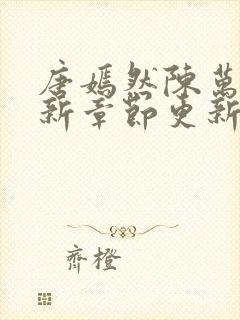 唐嫣然陳萬
新章節更新
齊橙